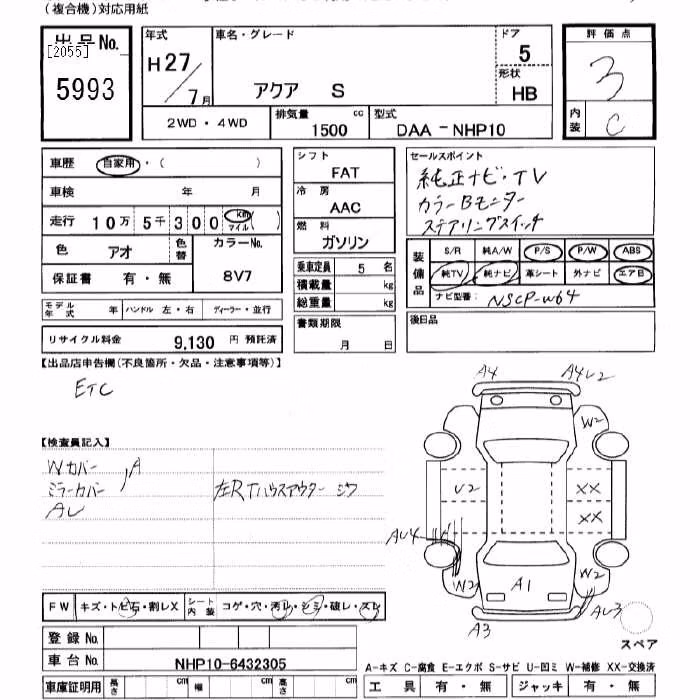 (複合機)対応用紙
出品No.
[2055]
5993
年式
H27/7月
車名・グレード
アクア S
ドア
5
形状
HB
評価点
3
内装
C
2WD・4WD
排気量 cc
1500
型式
DAA-NHP10
車歴 自家用・( )
車検 年 月
走行 10万5千300 km マイル ( )
色 アオ
色替
カラーNo.
8V7
保証書 有・無
モデル年式 年 ハンドル 左・右 ディーラー・並行
リサイクル料金 9,130 円 預託済
シフト
FAT
冷房
AAC
燃料
ガソリン
乗車定員 5 名
積載量 kg
総重量 kg
書類期限
月 日
セールスポイント
純正ナビ・TV
カラーBモニター
ステアリングスイッチ
装備品
S/R 純A/W P/S P/W ABS
純TV 純ナビ 革シート 外ナビ エアB
ナビ型番: NSCP-W64
後日品
【出品店申告欄(不良箇所・欠品・注意事項等)】
ETC
【検査員記入】
Wカバー
ミラーカバー
A
AU
左RTハウスアウター シワ
A4
A4U2
W2
U2
XX
XX
AU4
W2
W2
A1
AU3
A3
スペア
FW キズ・トビ石・割レX
シート内装 コゲ・穴・汚レ・シミ・破レ・スレ
登録No.
車台No. NHP10-6432305
車庫証明用 長さ cm 幅 cm 高さ cm
A-キズ C-腐食 E-エクボ S-サビ U-凹ミ W-補修 XX-交換済
工具 有・無 ジャッキ 有・無